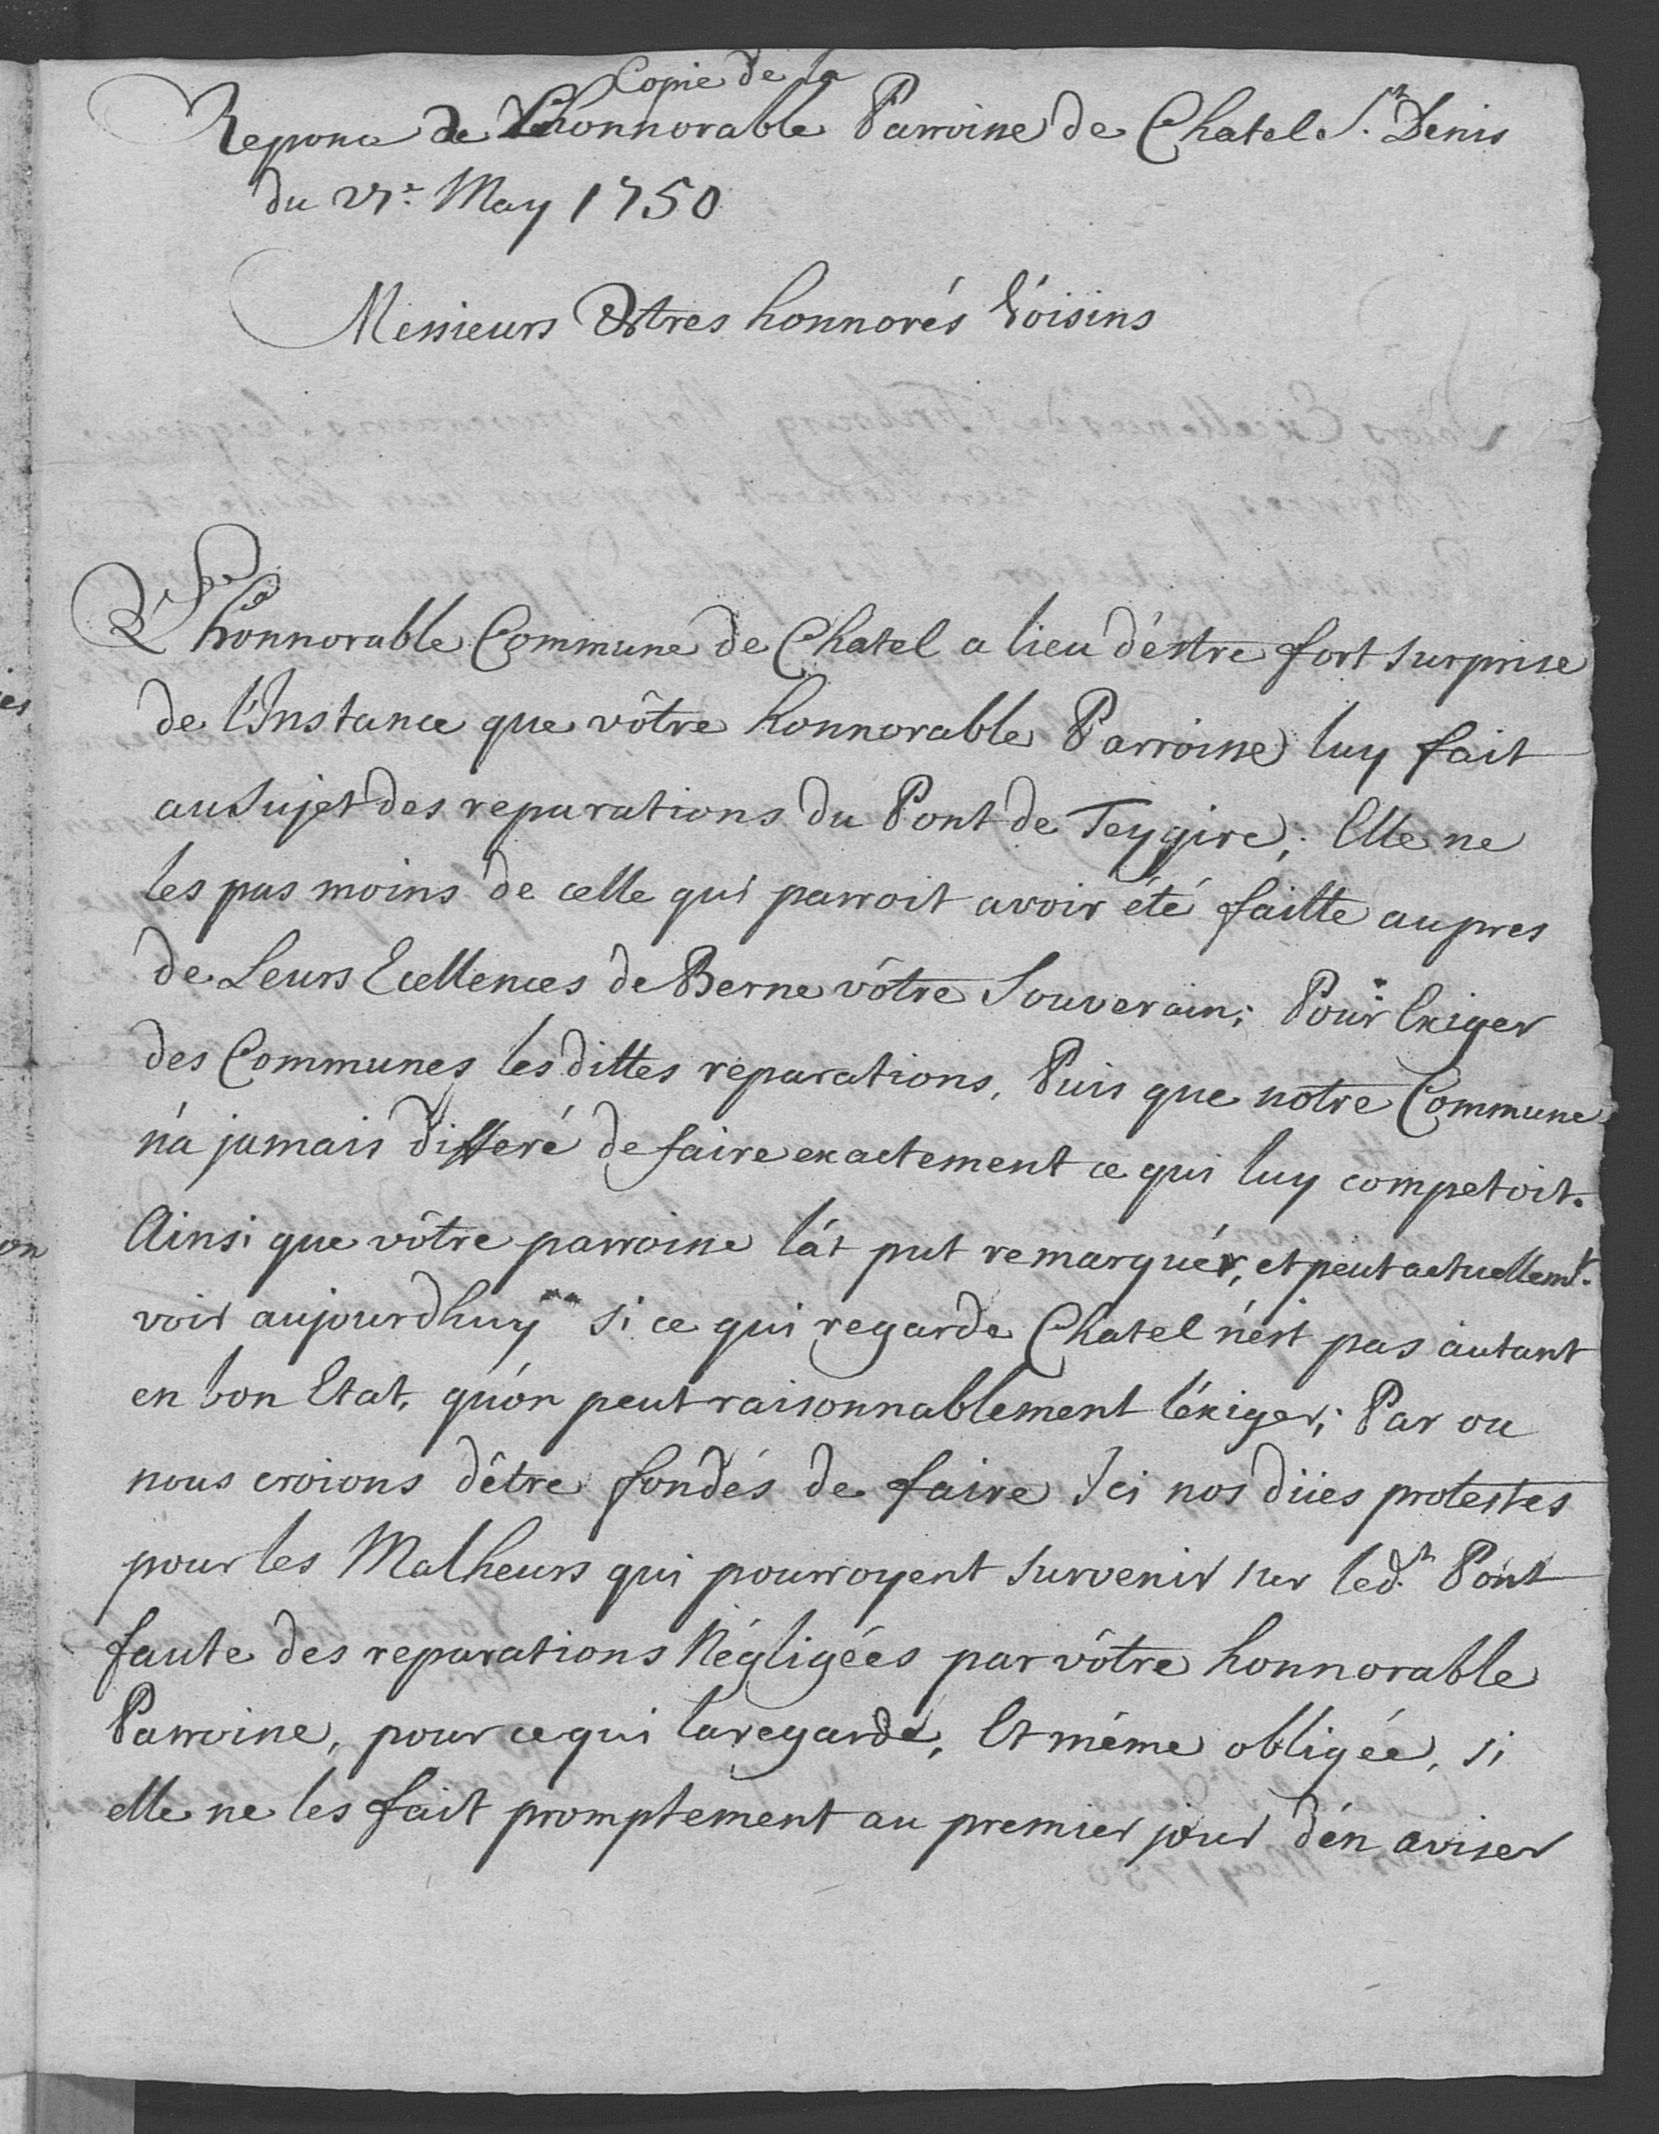 Copie de la
Reponce de Lhonnorable Parroisse de Chatel St. Denis
du 27e May 1750
Messieurs Et tres honnorés Vóisins
L'honnorable Commune de Chatel a lieu d'éstre fort surprise
de l'Instance que vôtre honnorable Parroisse luy fait
au Sujet des reparations du Pont de Feygire; Elle ne
les pas moins de celle qui parroit avoir été faitte aupres
de Leurs Ecellences de Berne vôtre Souverain; Pour Exiger
des Communes les dittes reparations, Puis que notre Commune
n'a jamais differé de faire exactement ce qui luy competoit.
Ainsi que vôtre parroisse l'at put remarquér, et peut actuellemt.
voir aujourdhuy si ce qui regarde Chatel n'ést pas autant
en bon Etat, qu'on peut raisonnablement l'éxiger; Par ou
nous croions d'être fondés de faire Ici nos dües protestes
pour les Malheurs qui pourroyent survenir sur ledt. Pont
faute des reparations Négligées par vôtre honnorable
Parroisse, pour ce qui la regarde, Et même obligée, si
elle ne les fait promptement au premier jour d'én aviser